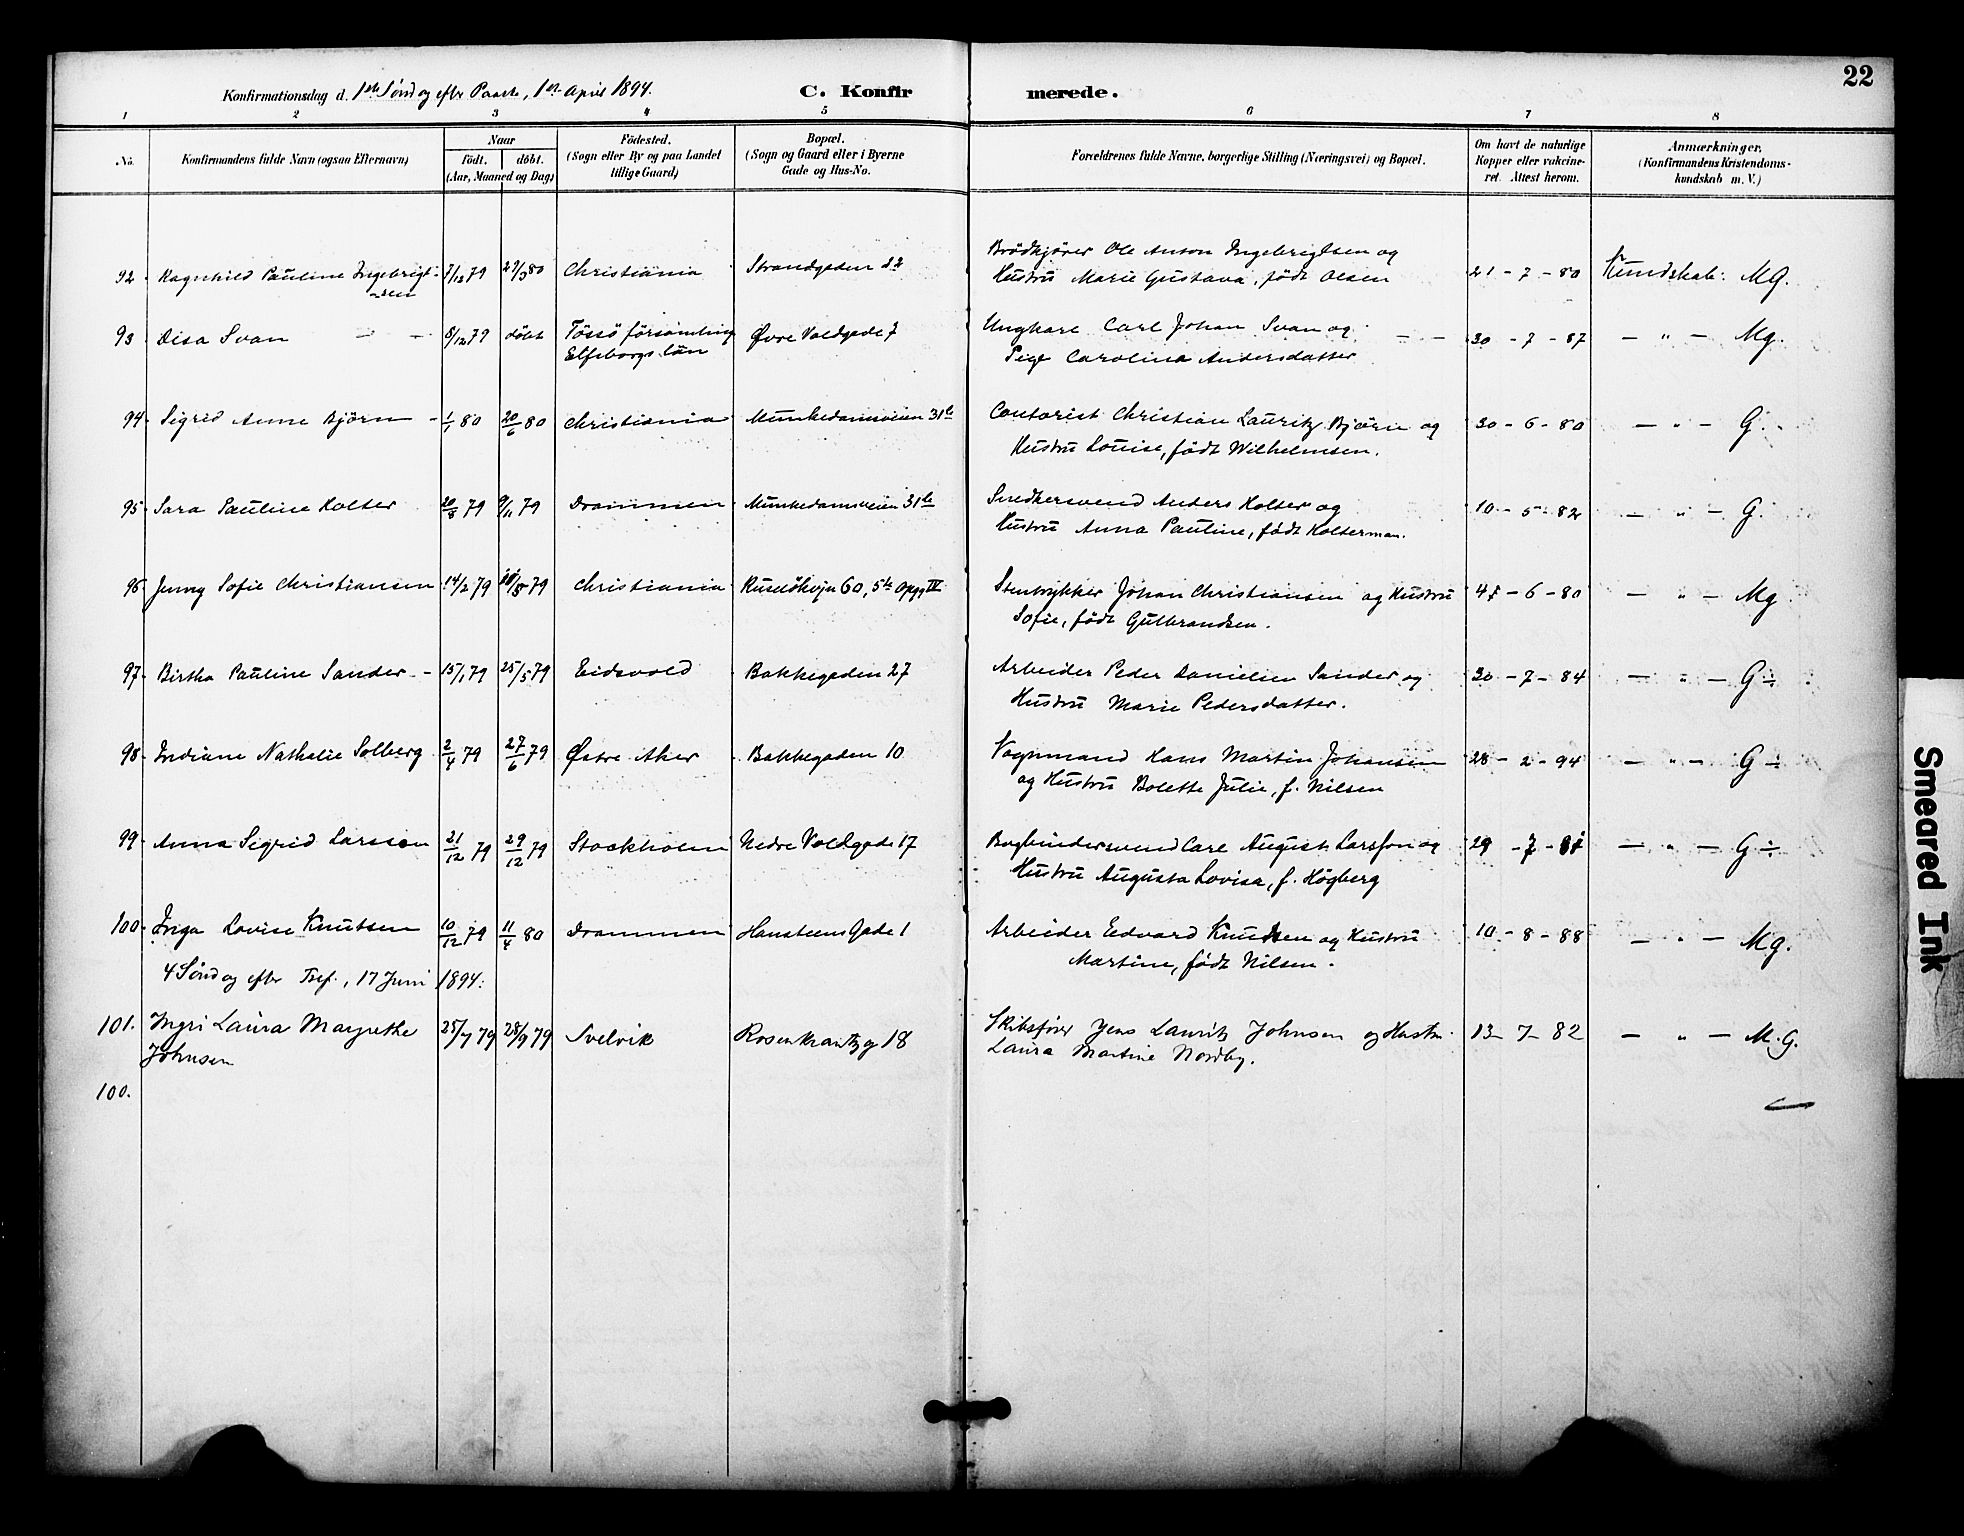 22
Konfirmationsdag d. 1ste Søndag efter Paaske, 1ste April 1894. C. Konfir merede.
1 2 3 4 5 6 7 8
No. Konfirmandens fulde Navn (ogsaa Efternavn) Naar Fødested. Bopæl. Forældrenes fulde Navne, borgerlige Stilling (Næringsvei) og Bopæl. Om havt de naturlige Anmærkninger.
født. døbt. (Sogn eller By og paa Landet (Sogn og Gaard eller i Byerne Kopper eller vakcine- (Konfirmandens Kristendoms-
(Aar, Maaned og Dag) tillige Gaard) Gade og Hus-No. ret. Attest herom. kundskab m. V.)
Brødkjører Ole Anton Ingebrigtsen og
92. Ragnhild Pauline Ingebrigt- 7/12 79 29/3 80 Christiania Strandgaden 22 Hustru Marie Gustava, født Olsen 21 - 7 - 80 Kundskab: MG.
-sen
93 Disa Svan — — 8/12 79 døbt Tössö församling Øvre Voldgade 7 Ungkarl Carl Johan Svan og — — 30 - 7 - 87 — " — Mg.
Elfsborgs län Pige Carolina Andersdatter
94. Sigrid Anne Bjørn - 1/1 80 20/6 80 Christiania Munkedamsveien 31b Contorist Christian Lauritz Bjørn og 30 - 6 - 80 — " — G.
Hustru Louise, født Wilhelmsen.
95. Sara Pauline Holter 20/8 79 9/11 79 Drammen Munkedamsveien 31b Snedkersvend Anders Holter og 10 - 5 - 82 — " — G.
Hustru Anna Pauline, født Holterman.
96. Jenny Sofie Christiansen 14/2 79 18/5 79 Christiania Ruseløkvejn 60, 5te Opgg IV Stentrykker Johan Christiansen og Hustru 47 - 6 - 80 — " — Mg
Sofie, født Gulbrandsen.
97. Birtha Pauline Sander - 15/1 79 25/5 79 Eidsvold Bakkegaden 27 Arbeider Peder Danielsen Sander og 30 - 7 - 84 — " — G÷
Hustru Marie Pedersdatter.
98. Indiane Nathalie Solberg 2/4 79 27/6 79 Østre Aker Bakkegaden 10 Vognmand Hans Martin Johansen 28 - 2 - 94 — " — G÷
og Hustru Bolette Julie, f. Nilsen
99. Anna Sigrid Larsson 21/12 79 29/12 79 Stockholm Nedre Voldgade 17 Bogbindersvend Carl August Larsson og 29 - 7 - 81 — " — G÷
Hustru Augusta Lovisa, f. Högberg
100. Inga Lovise Knutsen 10/12 79 11/4 80 Drammen Hansteens Gade 1 Arbeider Edvard Knutsen og Hustru 10 - 8 - 88 — " — Mg.
Martine, født Nilsen.
4 Søndag efter Tref., 17 Juni 1894:
101. Ingri Laura Margrethe 25/7 79 28/9 79 Svelvik Rosenkrantzg 18 Skibsfører Jens Lauritz Johnsen og Hustru 13 - 7 - 82 — " — M.G.
Johnsen Laura Martine Nordby.
100.
Smeared Ink